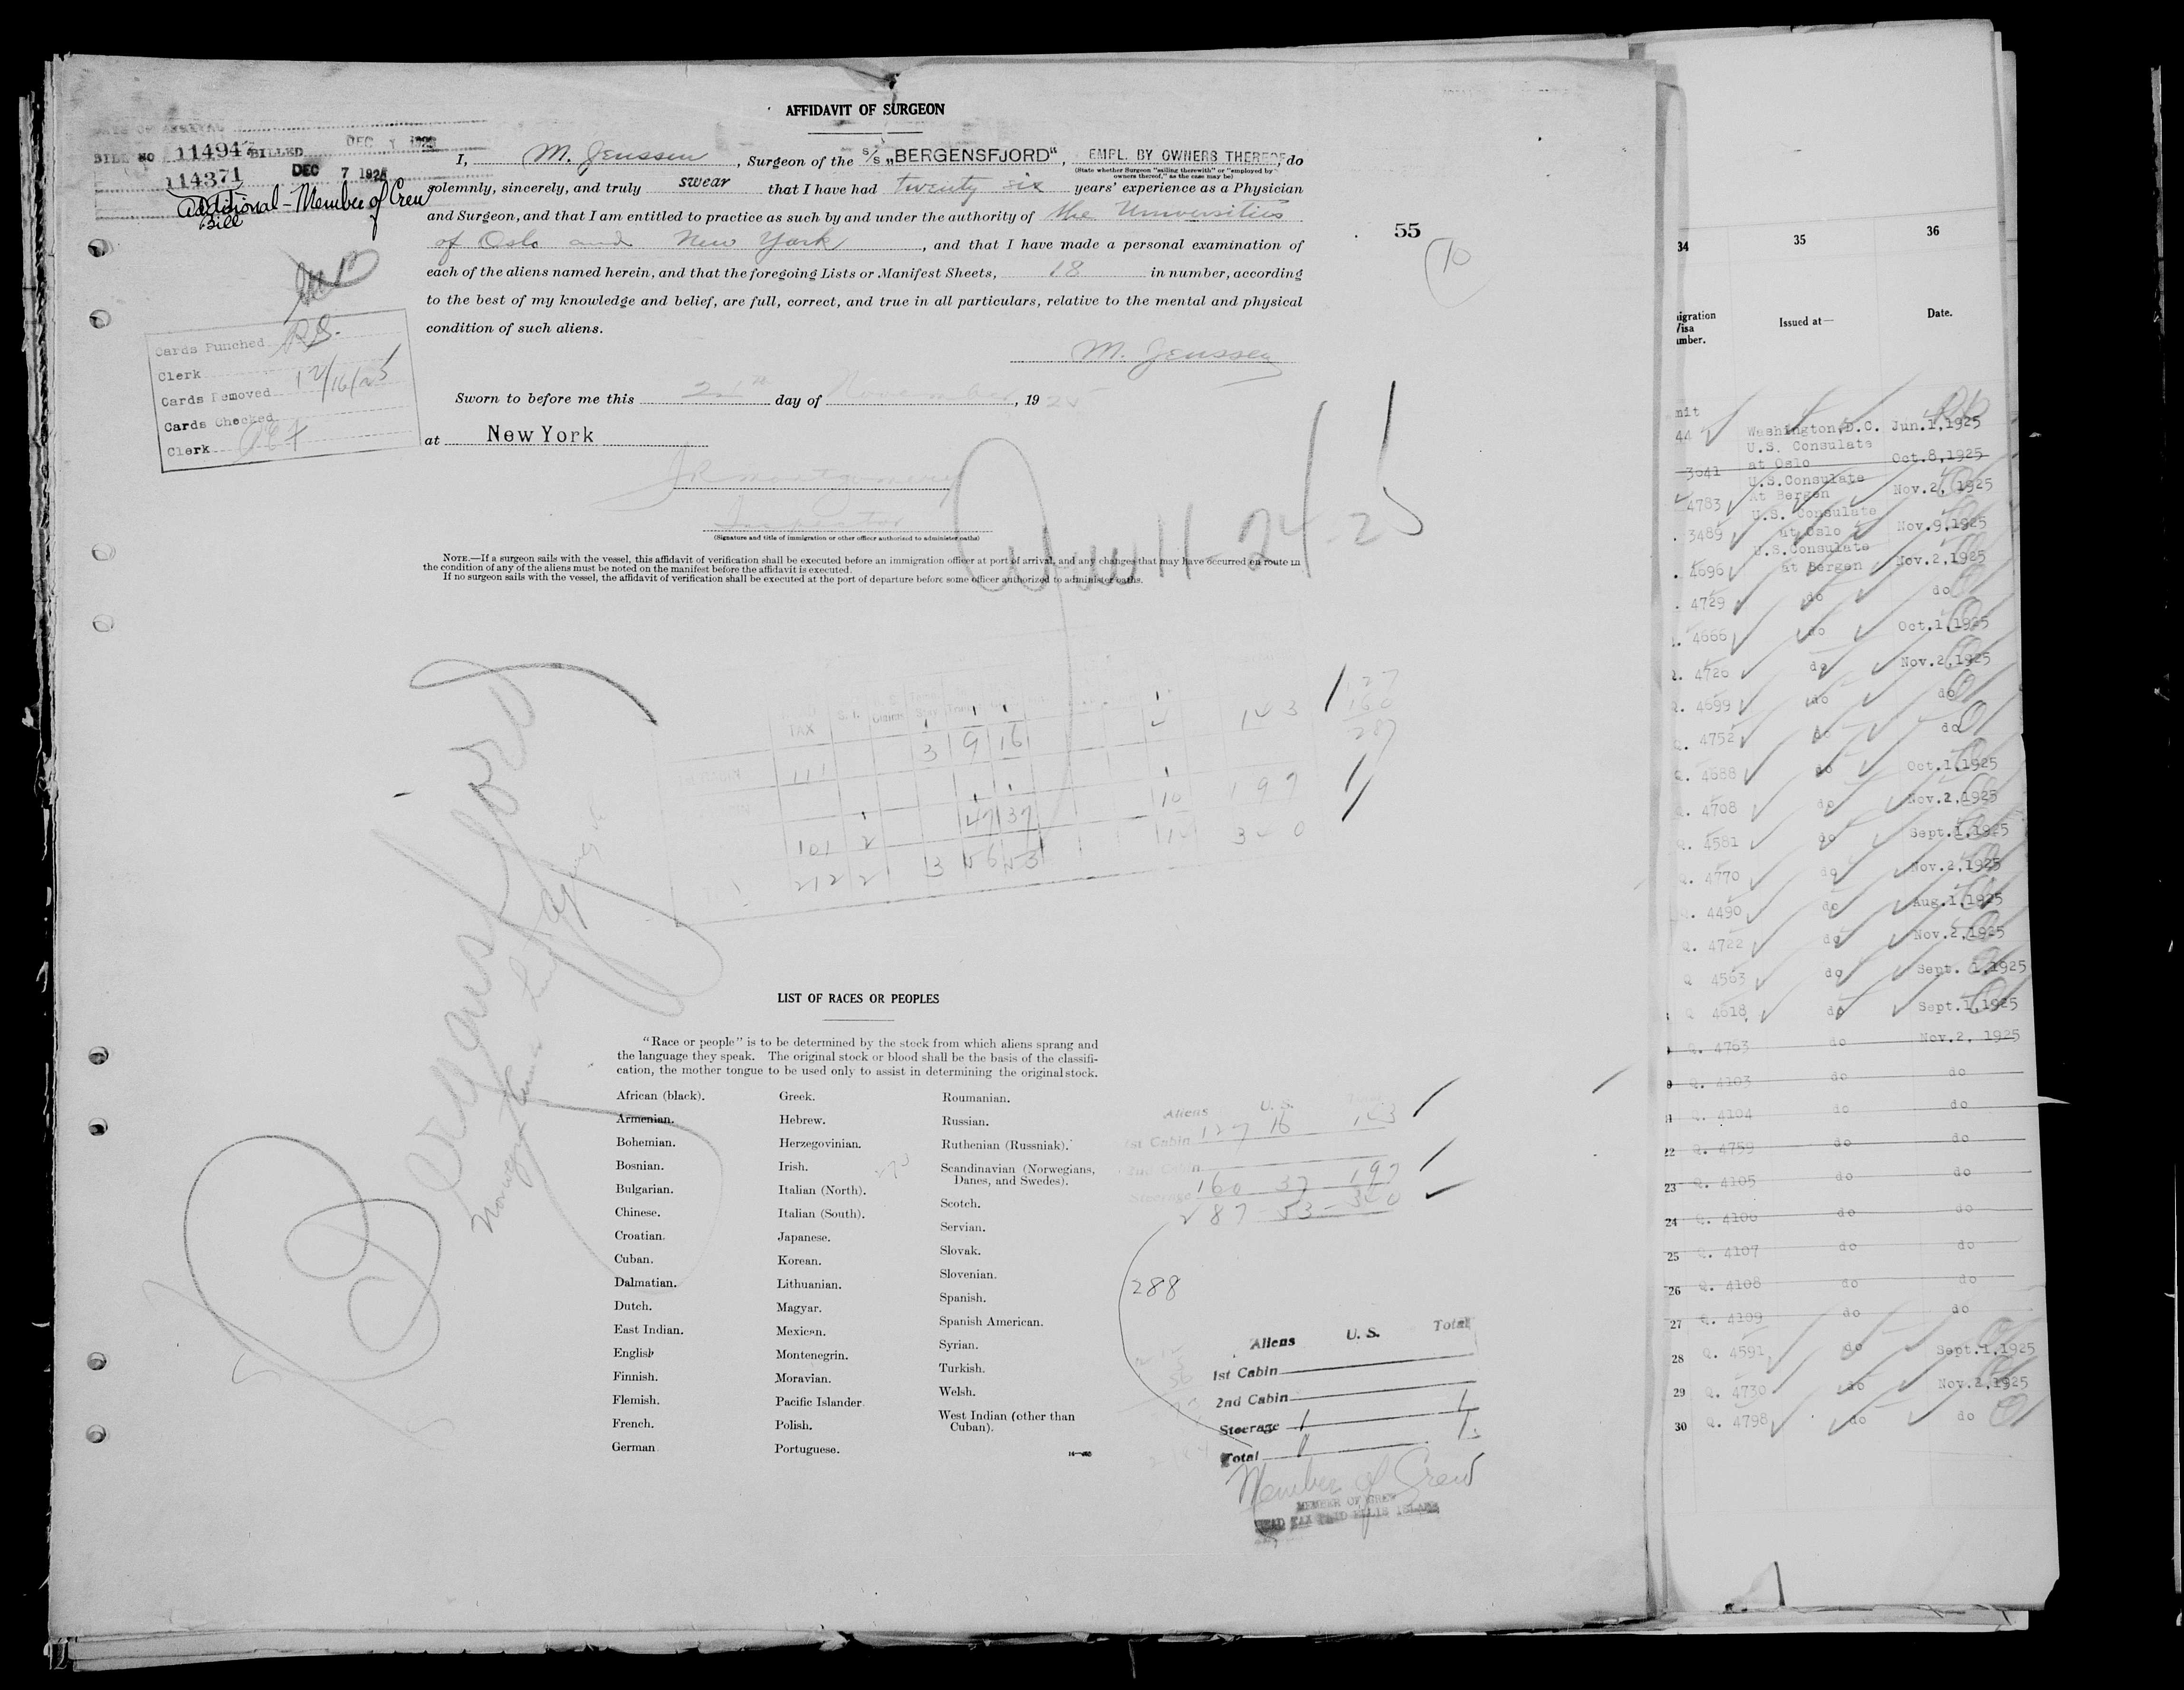 AFFIDAVIT OF SURGEON
DATE OF ARRIVAL
BILL NO 11494 BILLED DEC 1 1925
114371 DEC 7 1925
Additional - Member of Crew
Bill
I, M. Jenssen, Surgeon of the S/S „BERGENSFJORD“, EMPL. BY OWNERS THEREOF, do
(State whether Surgeon "sailing therewith" or "employed by owners thereof," as the case may be)
solemnly, sincerely, and truly swear that I have had twenty six years' experience as a Physician
and Surgeon, and that I am entitled to practice as such by and under the authority of the Universities
of Oslo and New York, and that I have made a personal examination of
each of the aliens named herein, and that the foregoing Lists or Manifest Sheets, 18 in number, according
to the best of my knowledge and belief, are full, correct, and true in all particulars, relative to the mental and physical
condition of such aliens.
M. Jenssen
55
10
Cards Punched
Clerk
Cards Removed 12/16/25
Cards Checked
Clerk
Sworn to before me this day of November, 1925
at New York
JR Montgomery
Inspector
(Signature and title of immigration or other officer authorized to administer oaths)
NOTE.—If a surgeon sails with the vessel, this affidavit of verification shall be executed before an immigration officer at port of arrival, and any changes that may have occurred en route in
the condition of any of the aliens must be noted on the manifest before the affidavit is executed.
If no surgeon sails with the vessel, the affidavit of verification shall be executed at the port of departure before some officer authorized to administer oaths.
11-24-25
Bergensfjord
TAX S. I.
3 9 16 143
111
47 37 10 197
101 2
212 2 3 56 53 14 340
127
160
287
LIST OF RACES OR PEOPLES
"Race or people" is to be determined by the stock from which aliens sprang and
the language they speak. The original stock or blood shall be the basis of the classifi-
cation, the mother tongue to be used only to assist in determining the original stock.
African (black).
Armenian.
Bohemian.
Bosnian.
Bulgarian.
Chinese.
Croatian.
Cuban.
Dalmatian.
Dutch.
East Indian.
English
Finnish.
Flemish.
French.
German
Greek.
Hebrew.
Herzegovinian.
Irish.
Italian (North).
Italian (South).
Japanese.
Korean.
Lithuanian.
Magyar.
Mexican.
Montenegrin.
Moravian.
Pacific Islander.
Polish.
Portuguese.
Roumanian.
Russian.
Ruthenian (Russniak).
Scandinavian (Norwegians,
Danes, and Swedes).
Scotch.
Servian.
Slovak.
Slovenian.
Spanish.
Spanish American.
Syrian.
Turkish.
Welsh.
West Indian (other than
Cuban).
Aliens U. S. Total
1st Cabin 127 16 143
2nd Cabin
Steerage 160 37 197
287 - 53 - 340
288
Aliens U. S. Total
1st Cabin
2nd Cabin
Steerage 1 1
Total 1 1
Member of Crew
MEMBER OF CREW
HEAD TAX PAID ELLIS ISLAND
34 35 36
igration
Visa
umber.
Issued at—
Date.
mit
44 Washington, D.C. Jun.1,1925
U.S. Consulate
3641 at Oslo Oct.8,1925
U.S.Consulate
4783 At Bergen Nov.2, 1925
U.S. Consulate
3489 at Oslo Nov.9,1925
U.S.Consulate
4696 at Bergen Nov.2,1925
4729 do do
4666 do Oct.1,1925
4726 do Nov.2,1925
Q. 4699 do do
Q. 4752 do do
Q. 4688 do Oct.1,1925
Q. 4708 do Nov.2,1925
Q. 4581 do Sept.1,1925
Q. 4770 do Nov.2,1925
Q. 4490 do Aug.1,1925
Q. 4722 do Nov.2,1925
Q 4563 do Sept. 1,1925
Q 4618 do Sept.1,1925
Q. 4763 do Nov.2, 1925
Q. 4103 do do
Q. 4104 do do
22 Q. 4759 do do
23 Q. 4105 do do
24 Q. 4106 do do
25 Q. 4107 do do
26 Q. 4108 do do
27 Q. 4109 do do
28 Q. 4591 do Sept.1,1925
29 Q. 4730 do Nov.2,1925
30 Q. 4798 do do